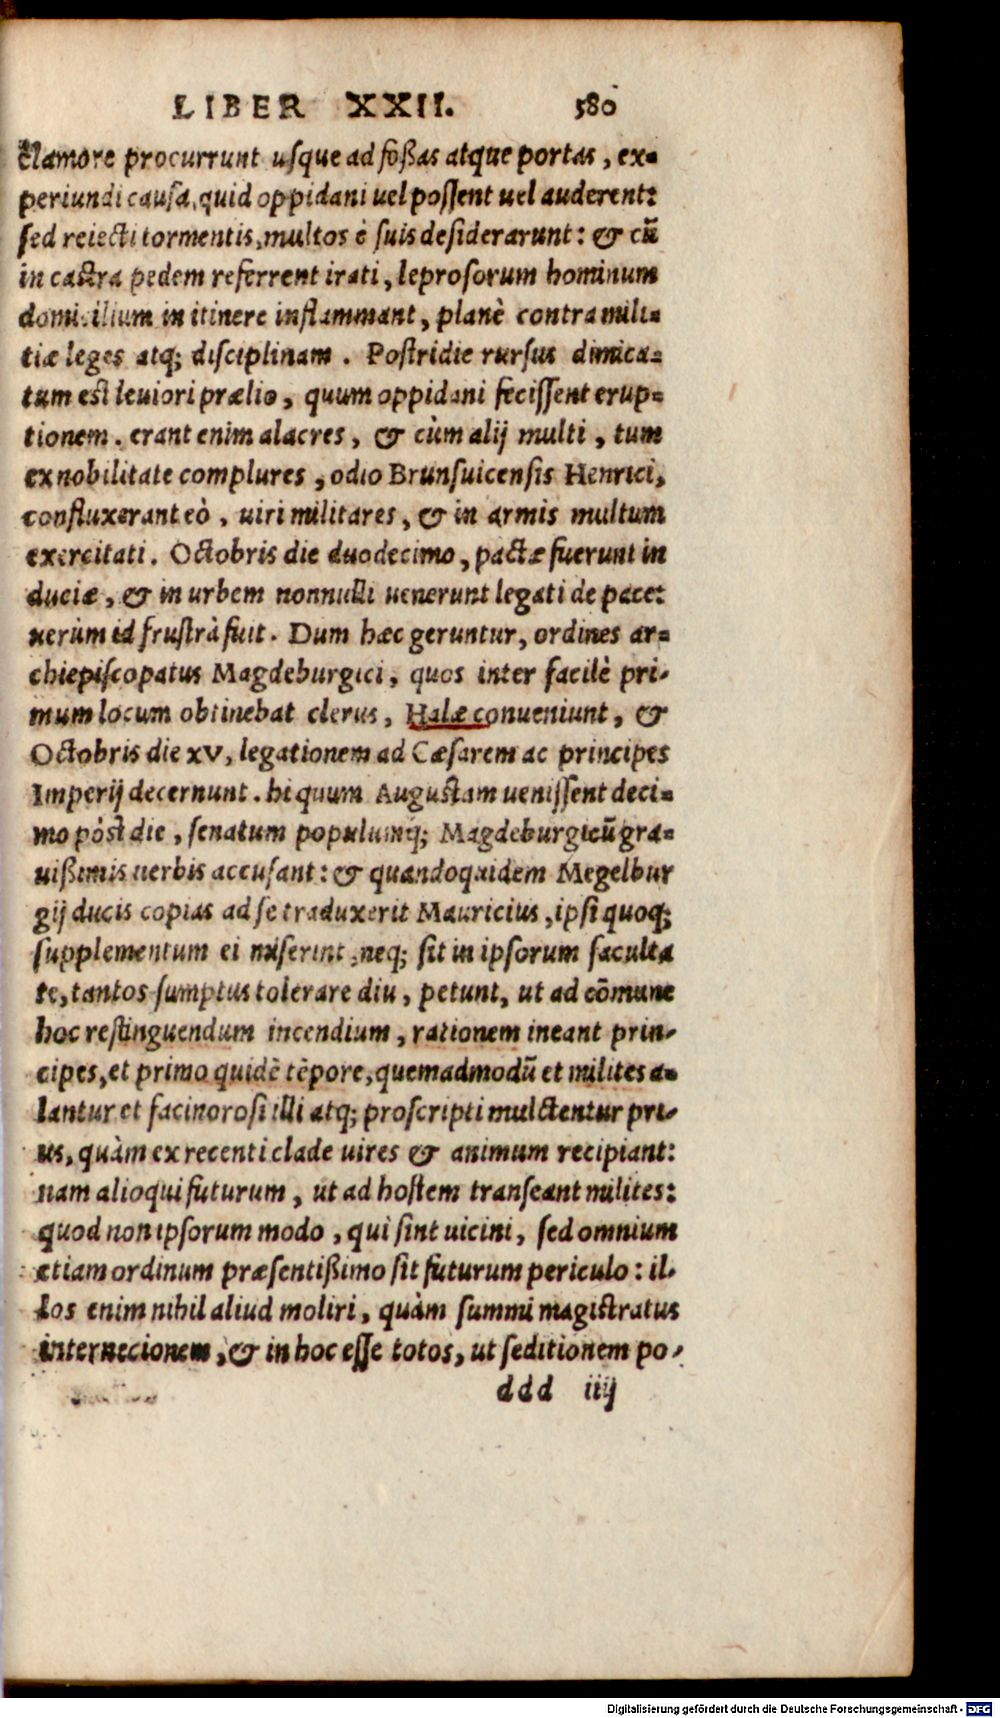 LIBER XXII. 580
clamore procurrunt usque ad foßas atque portas, ex=
periundi causa, quid oppidani uel poſſent uel auderent:
ſed reiecti tormentis, multos è ſuis deſiderarunt: & cū
in caſtra pedem referrent irati, leproſorum hominum
domicilium in itinere inflammant, planè contra mili=
tiæ leges atq; diſciplinam. Poſtridie rurſus dimica=
tum eſt leuiori prælio, quum oppidani feciſſent erup=
tionem. erant enim alacres, & cùm alij multi, tum
ex nobilitate complures, odio Brunſuicenſis Henrici,
confluxerant eò, uiri militares, & in armis multum
exercitati. Octobris die duodecimo, pactæ fuerunt in
duciæ, & in urbem nonnulli uenerunt legati de pace:
uerùm id fruſtrà fuit. Dum hæc geruntur, ordines ar=
chiepiſcopatus Magdeburgici, quos inter facilè pri-
mum locum obtinebat clerus, Halæ conueniunt, &
Octobris die XV, legationem ad Cæſarem ac principes
Imperij decernunt. hi quum Auguſtam ueniſſent deci=
mo pòſt die, ſenatum populumq; Magdeburgicū gra=
uißimis uerbis accuſant: & quandoquidem Megelbur
gij ducis copias ad ſe traduxerit Mauricius, ipſi quoq;
ſupplementum ei miſerint, neq; ſit in ipſorum faculta
te, tantos ſumptus tolerare diu, petunt, ut ad cōmune
hoc reſtinguendum incendium, rationem ineant prin-
cipes, et primo quidē tēpore, quemadmodū et milites a=
lantur et facinoroſi illi atq; proſcripti mulctentur pri-
us, quàm ex recenti clade uires & animum recipiant:
nam alioqui futurum, ut ad hoſtem tranſeant milites:
quod non ipſorum modo, qui ſint uicini, ſed omnium
etiam ordinum præſentißimo ſit futurum periculo: il-
los enim nihil aliud moliri, quàm ſummi magiſtratus
internecionem, & in hoc eſſe totos, ut ſeditionem po-
ddd iiij
Digitalisierung gefördert durch die Deutsche Forschungsgemeinschaft - DFG